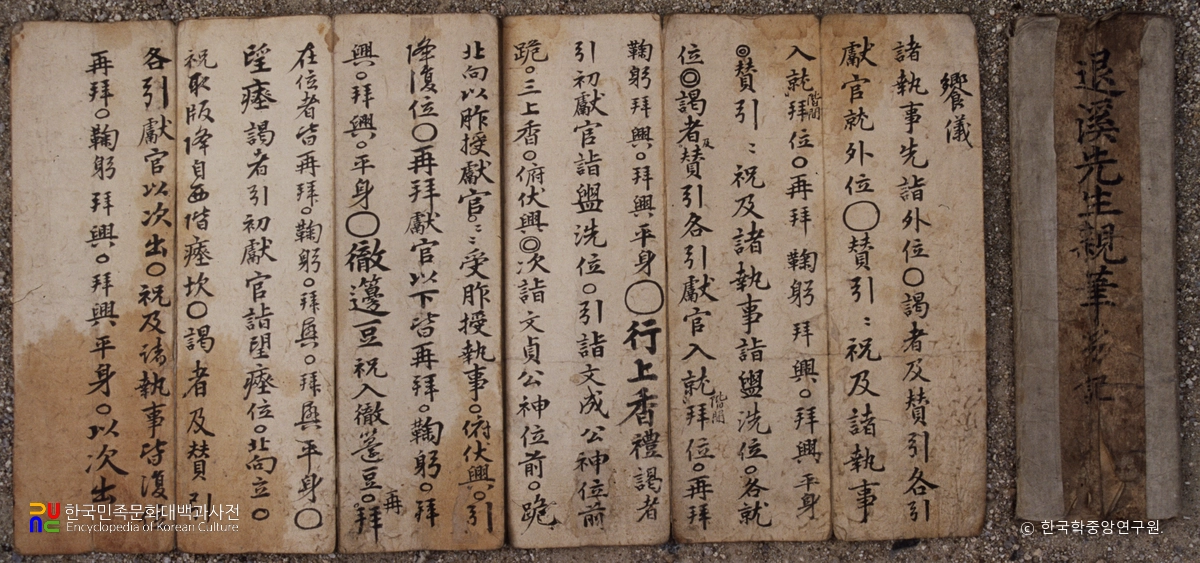 退溪先生親筆笏記
饗儀
諸執事先詣外位〇謁者及賛引各引
獻官就外位〇賛引〻祝及諸執事
入就階間拜位〇再拜 鞠躬 拜興〇拜興 平身
◎賛引〻祝及諸執事詣盥洗位〇各就
位◎謁者及賛引各引獻官入就階間拜位〇再拜
鞠躬拜興〇拜興平身〇行上香禮謁者
引初獻官詣盥洗位〇引詣文成公神位前
跪〇三上香〇俯伏興◎次詣文貞公神位前〇跪
北向以胙授獻官〻受胙授執事〇俯伏興〇引
降復位〇再拜獻官以下皆再拜〇鞠躬〇拜
興〇拜興〇平身〇徹籩豆祝入徹籩豆〇再拜
在位者皆再拜〇鞠躬〇拜興〇拜興平身〇
望瘞謁者引初獻官詣望瘞位〇北向立〇
祝取版降自西階瘞坎〇謁者及賛引
各引獻官以次出〇祝及諸執事皆復
再拜〇鞠躬 拜興〇拜興平身〇以次出
한국민족문화대백과사전
Encyclopedia of Korean Culture
ⓒ 한국학중앙연구원.